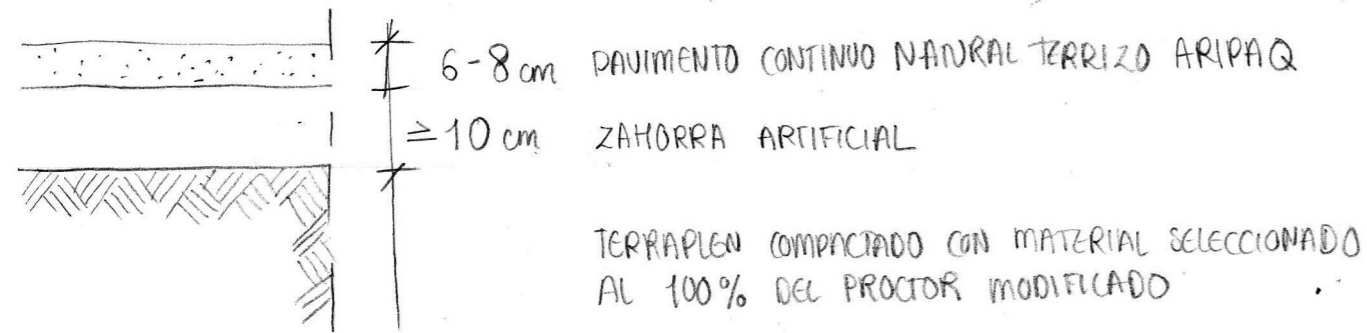 6-8 cm PAVIMENTO CONTINUO NATURAL TERRIZO ARIPAQ
≥10 cm ZAHORRA ARTIFICIAL
TERRAPLEN COMPACTADO CON MATERIAL SELECCIONADO
AL 100% DEL PROCTOR MODIFICADO